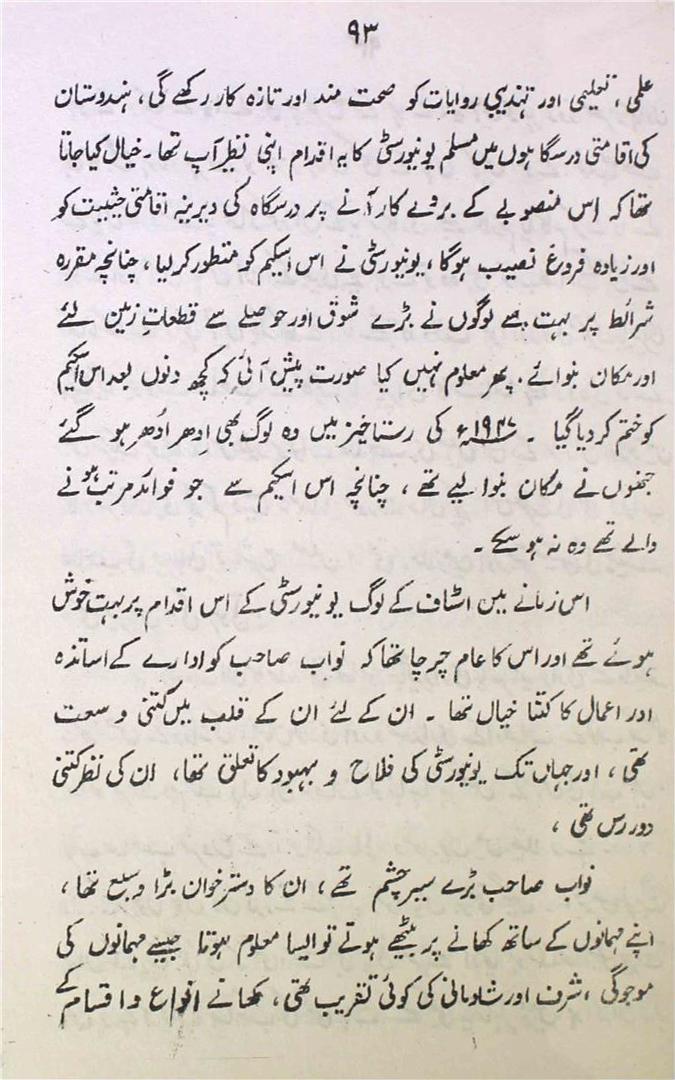 ۹۳
علمی، تعلیمی اور تہذیبی روایات کو صحت مند اور تازہ کار رکھے گی، ہندوستان
کی اقامتی درسگاہوں میں مسلم یونیورسٹی کا یہ اقدام اپنی نظیر آپ تھا۔ خیال کیا جاتا
تھا کہ اس منصوبے کے بروے کار آنے پر درسگاہ کی دیرینہ اقامتی حیثیت کو
اور زیادہ فروغ نصیب ہوگا، یونیورسٹی نے اس اسکیم کو منظور کر لیا، چنانچہ مقررہ
شرائط پر بہت سے لوگوں نے بڑے شوق اور حوصلے سے قطعاتِ زمین لئے
اور مکان بنوائے۔ پھر معلوم نہیں کیا صورت پیش آئی کہ کچھ دنوں بعد اس اسکیم
کو ختم کر دیا گیا ۔ ۱۹۴۷ء کی رستاخیز میں وہ لوگ بھی اِدھر اُدھر ہو گئے
جنھوں نے مکان بنوا لیے تھے، چنانچہ اس اسکیم سے جو فوائد مرتب ہونے
والے تھے وہ نہ ہو سکے ۔
اس زمانے میں اسٹاف کے لوگ یونیورسٹی کے اس اقدام پر بہت خوش
ہوئے تھے اور اس کا عام چرچا تھا کہ نواب صاحب کو ادارے کے اساتذہ
اور اعمال کا کتنا خیال تھا ۔ ان کے لئے ان کے قلب میں کتنی وسعت
تھی، اور جہاں تک یونیورسٹی کی فلاح و بہبود کا تعلق تھا، ان کی نظر کتنی
دور رس تھی ،
نواب صاحب بڑے سیر چشم تھے، ان کا دستر خوان بڑا وسیع تھا،
اپنے مہمانوں کے ساتھ کھانے پر بیٹھے ہوتے تو ایسا معلوم ہوتا جیسے مہمانوں کی
موجوگی ،شرف اور شادمانی کی کوئی تقریب تھی، کھانے انواع و اقسام کے